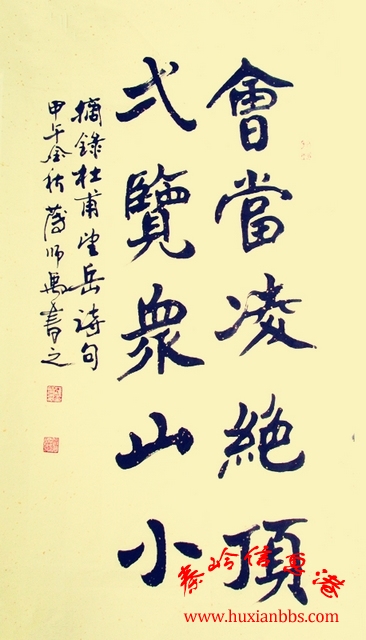 會當凌絕頂
弌覽衆山小
摘錄杜甫望岳詩句
甲午金秋師禹書之
秦岭信息港
www.huxianbbs.com